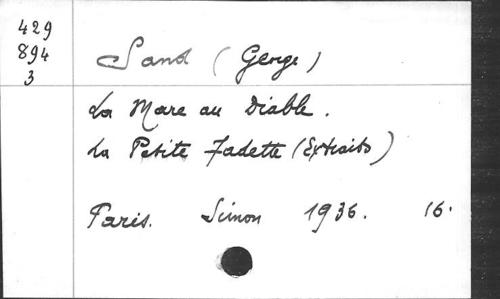 429
894
3
Sand (George)
La Mare au Diable.
La Petite Fadette (Extraits)
Paris. Simon 1936. 16.